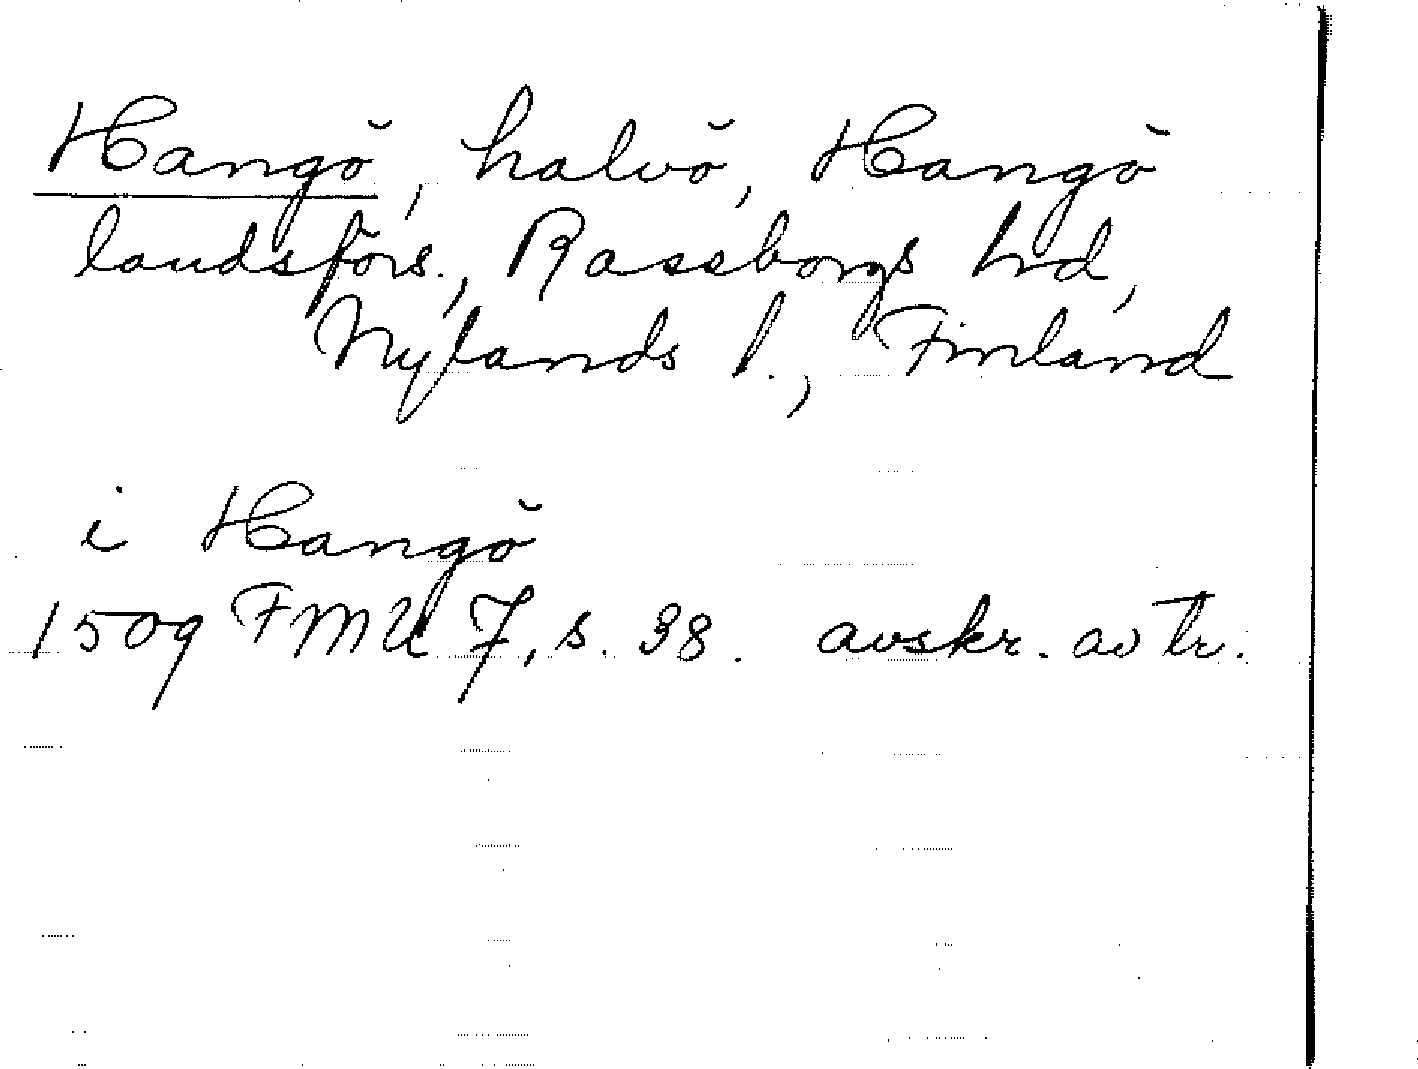 Hangö, halvö, Hangö
landsförs., Rassborgs hrd,
Nylands l., Finland
i Hangö
1509 FMU 7, s. 38. avskr. av tr.